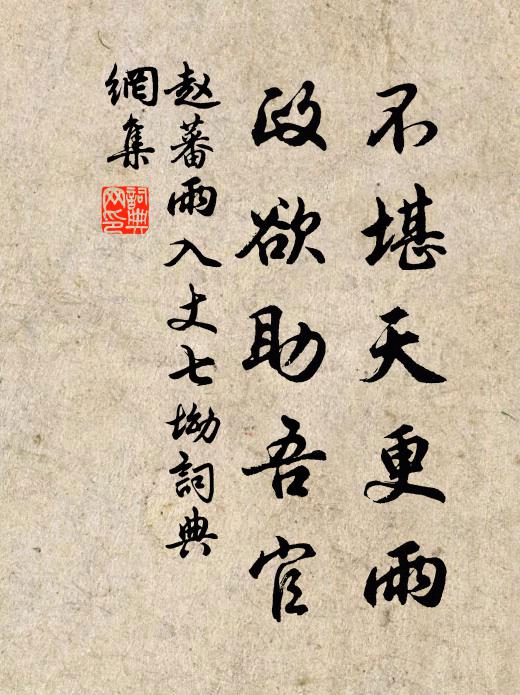 不堪天更雨
政欲助吾官
赵蕃雨入丈七坳詞典
網集
詞典網印